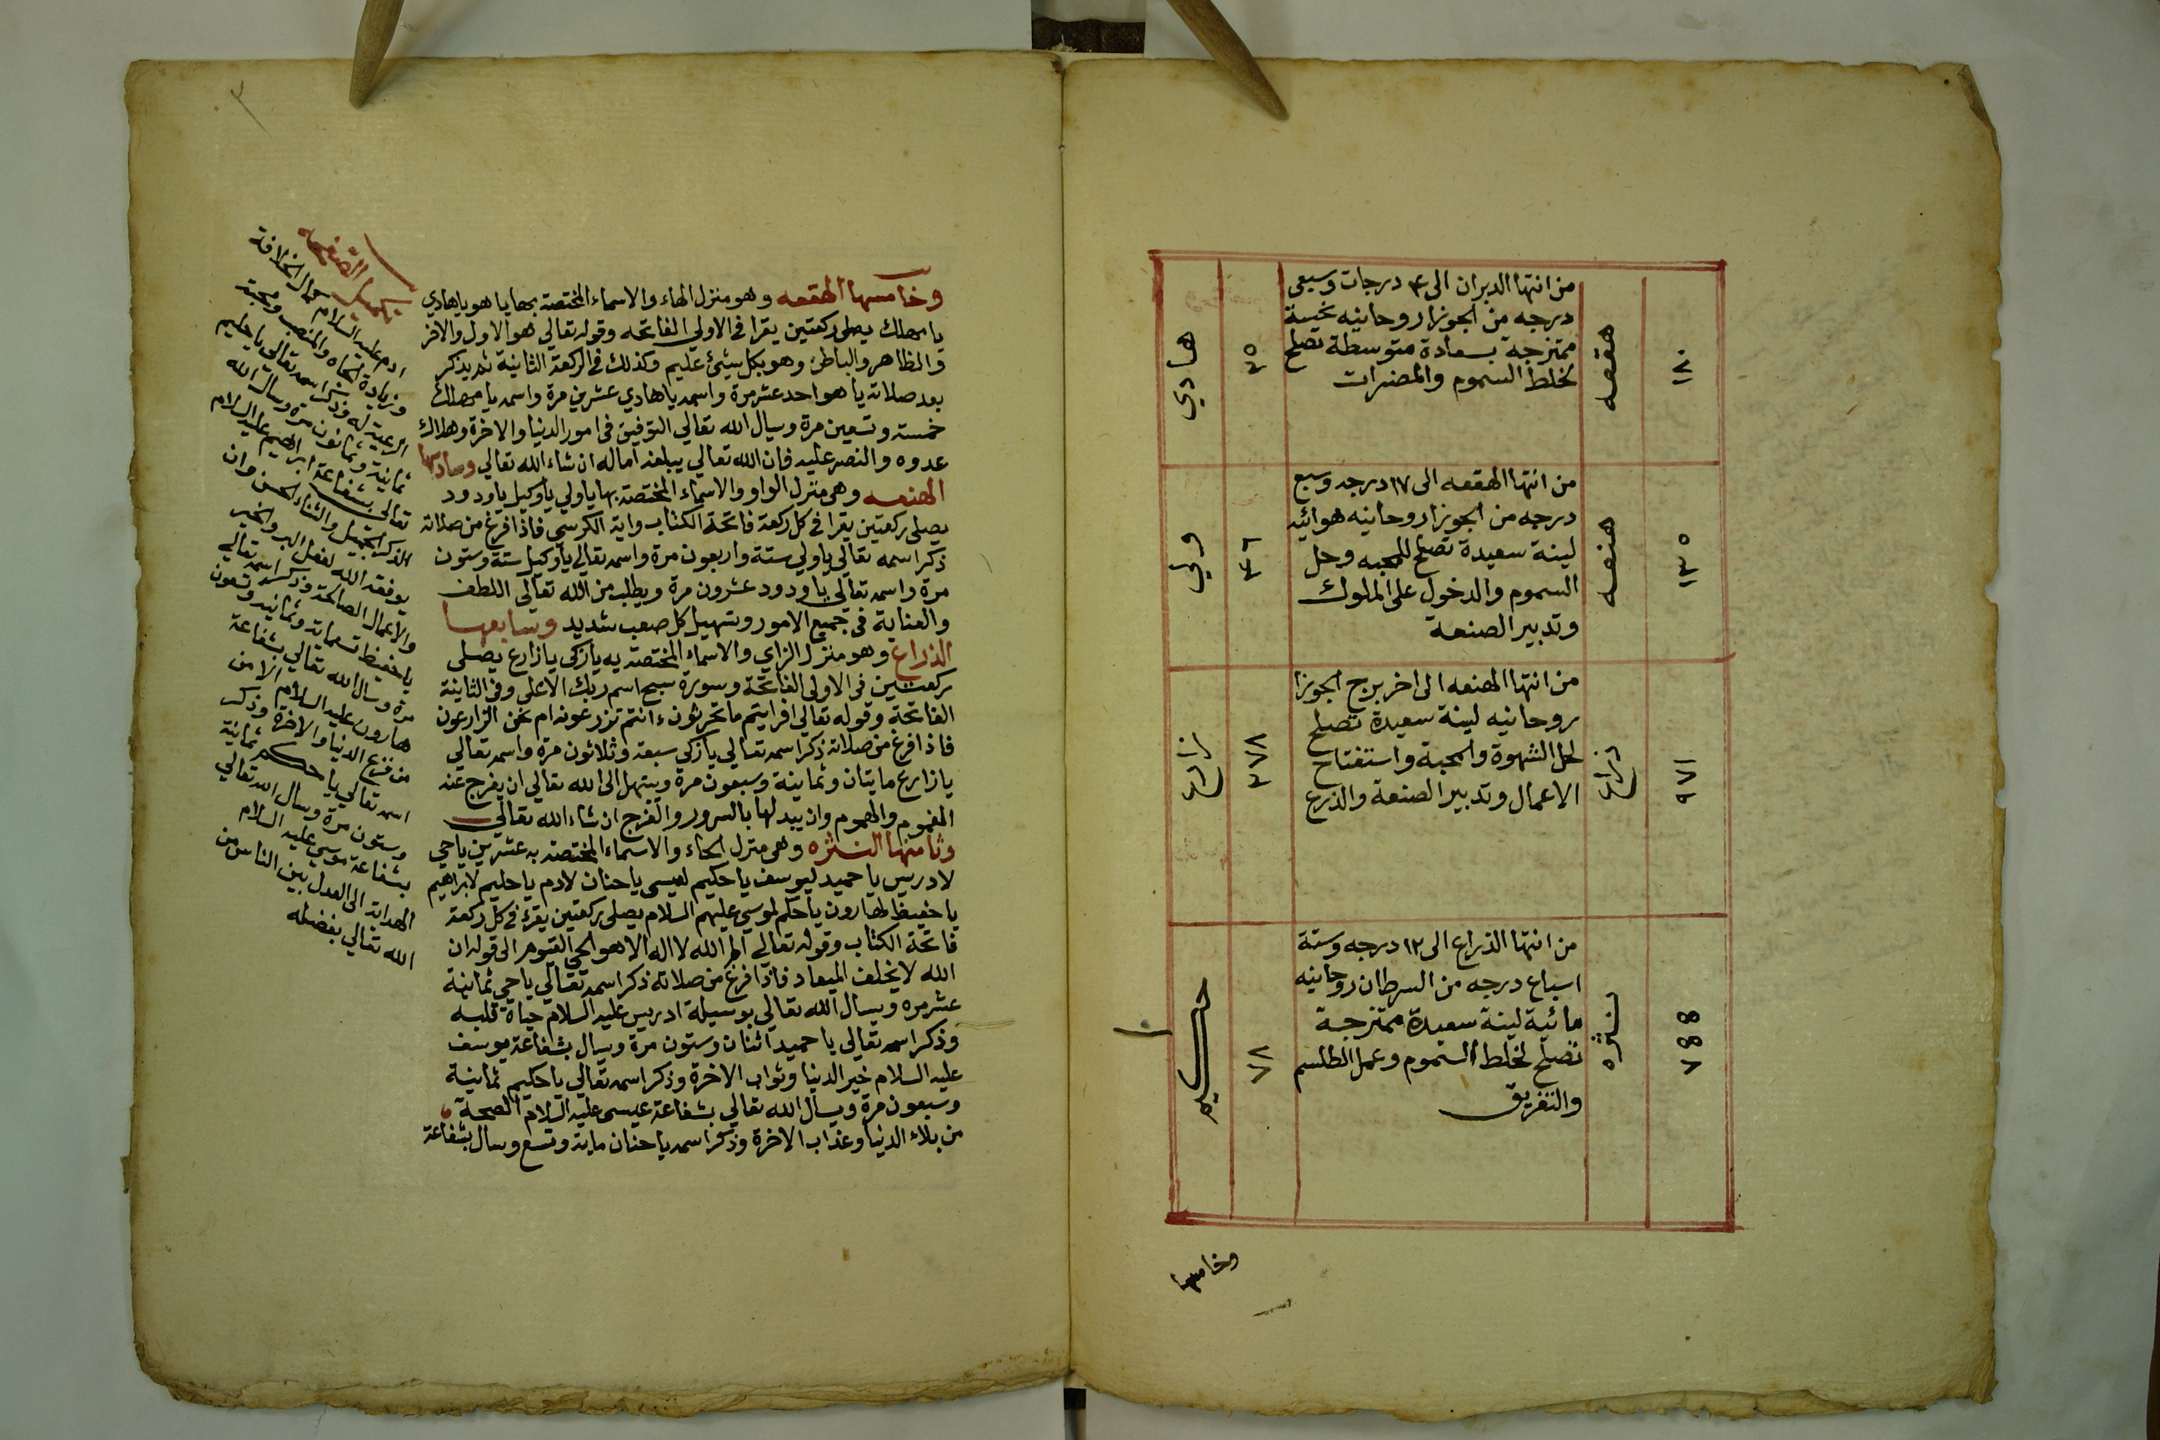 ١٨٠
هقعه
من انتها الدبران الى ٤ درجات وسبعى
درجه من الجوزا روحانيه نحسة
ممتزجة بسعادة متوسطة تصلح
لخلط السموم والمضرات
٢٥
هادي
١٣٥
هنعه
من انتها الهقعه الى ١٧ درجه وسبع
درجه من الجوزا روحانيه هوائيه
لينة سعيدة تصلح للمحبه وحل
السموم والدخول على الملوك
وتدبير الصنعة
٤٦
ولي
٩٧١
ذراع
من انتها الهنعه الى اخر برج الجوزا
روحانيه لينة سعيدة تصلح
لحل الشهوة والمحبة واستفتاح
الاعمال وتدبير الصنعة والذرع
٢٧٨
زارع
٧٥٥
نثره
من انتها الذراع الى ١٢ درجه وستة
اسباع درجه من السرطان روحانيه
مائية لينة سعيدة ممتزجة
تصلح لخلط السموم وعمل الطلسم
والتفريق
٧٨
حكيم
وخامسها
٣
وخامسها الهقعه وهو منزل الهاء والاسماء المختصة بها يا هو يا هادي
يا مهلك يصلى ركعتين يقرا فى الاولى الفاتحه وقوله تعالي هو الاول والاخر
والظاهر والباطن وهو بكل شيئ عليم وكذلك فى الركعة الثانية ثم يذكر
بعد صلاته يا هو احد عشر مرة واسمه يا هادي عشرين مرة واسمه يا مهلك
خمسة وتسعين مرة وسيال الله تعالي التوفيق فى امور الدنيا والاخرة وهلاك
عدوه والنصر عليه فان الله تعالي يبلغه اماله ان شاء الله تعالي وسادسها
الهنعه وهى منزل الواو والاسماء المختصة بها يا ولي يا وكيل يا ودود
يصلى ركعتين يقرا فى كل ركعة فاتحة الكتاب واية الكرسي فاذا فرغ من صلاته
ذكر اسمه تعالي يا ولي ستة واربعون مرة واسمه تعالي يا وكيل ستة وستون
مرة واسمه تعالي يا ودود عشرون مرة ويطلب من الله تعالي اللطف
والعناية فى جميع الامور وتسهيل كل صعب شديد وسابعها
الذراع وهو منزل الزاي والاسماء المختصة به يا زكى يا زارع يصلى
ركعتين فى الاولى الفاتحة وسورة سبح اسم ربك الاعلى وفى الثانية
الفاتحة وقوله تعالي افرايتم ما تحرثون ءانتم تزرعونه ام نحن الزارعون
فاذا فرغ من صلاته ذكر اسمه تعالي يا زكى سبعة وثلاثون مرة واسمه تعالي
يا زارع مايتان وثمانية وسبعون مرة ويبتهل الى الله تعالي ان يفرج عنه
الغموم والهموم وان يبدلها بالسرور والفرج ان شاء الله تعالي
وثامنها النثره وهى منزل الحاء والاسماء المختصة به عشرين يا حي
لادريس يا حميد ليوسف يا حكيم لعيسى يا حنان لادم يا حليم لابراهيم
يا حفيظ لهارون يا حكم لموسى عليهم السلام يصلى ركعتين يقرء فى كل ركعة
فاتحة الكتاب وقوله تعالي الم الله لا اله الا هو الحى القيوم الى قوله ان
الله لا يخلف الميعاد فاذا فرغ من صلاته ذكر اسمه تعالي يا حي ثمانية
عشر مره ويسال الله تعالي بوسيلة ادريس عليه السلام حياة قلبه
وذكر اسمه تعالي يا حميد اثنان وستون مرة ويسال بشفاعة يوسف
عليه السلام خير الدنيا وثواب الاخرة وذكر اسمه تعالي يا حكيم ثمانية
وسبعون مرة ويسال الله تعالي بشفاعة عيسى عليه السلام الصحة
من بلاء الدنيا وعذاب الاخرة وذكر اسمه يا حنان ماية وتسع وسال بشفاعة
ادم عليه السلام كمال الخلافة
وزيادة الجاه والمنصب ومحبة
الرعية له وذكر اسمه تعالي يا حليم
ثمانية وثمانون مرة وسال الله
تعالى بشفاعة ابراهيم عليه السلام
الذكر الجميل والثناء الحسن وان
يوفقه الله لفعل البر والخير
والاعمال الصالحة وذكر اسمه تعالي
يا حفيظ تسعماية وثمانية وتسعون
مرة وسال الله تعالي بشفاعة
هارون عليه السلام الامن
من فزع الدنيا والاخرة وذكر
اسمه تعالي يا حكم ثمانية
وستون مرة وسال الله تعالي
بشفاعة موسى عليه السلام
الهداية الى العدل بين الناس من
الله تعالي بفضله